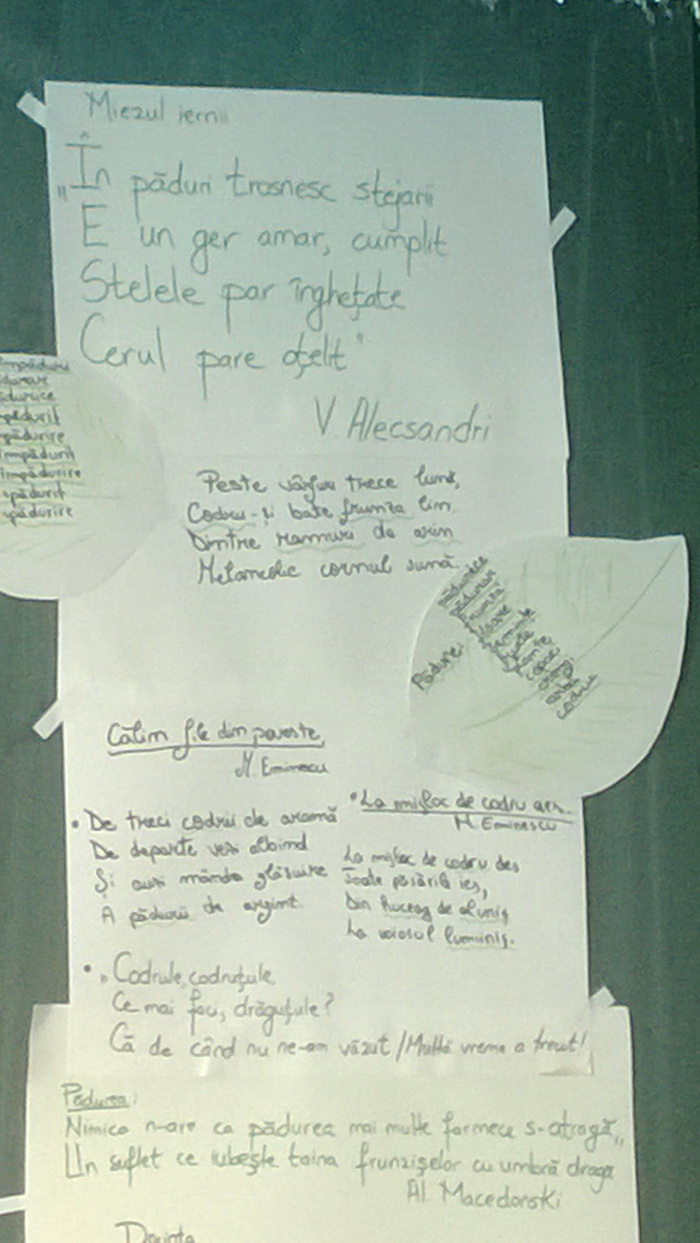 Miezul iernii
„În păduri trosnesc stejarii
E un ger amar, cumplit
Stelele par înghețate
Cerul pare oțelit"
V. Alecsandri
împăduri
pădurice
împădurit
împădurire
Peste vârfuri trece lună,
Codru-și bate frunza lin
Dintre ramuri de arin
Melancolic cornul sună.
pădurice
pădurar
Pădurei
codru
Călin file din poveste,
M. Eminescu
• De treci codrii de aramă
De departe vezi albind
Și auzi mândra glăsuire
A pădurii de argint.
• La mijloc de codru des.
M. Eminescu
La mijloc de codru des
Toate păsările ies,
Din huceag de aluniș
La voiosul luminiș.
• „Codrule, codruțule,
Ce mai faci, drăguțule?
Că de când nu ne-am văzut / Multă vreme a trecut!
Pădurea:
Nimica n-are ca pădurea mai multe farmece s-atragă„
Un suflet ce iubește taina frunzișelor cu umbră dragă
Al. Macedonski
Dorința